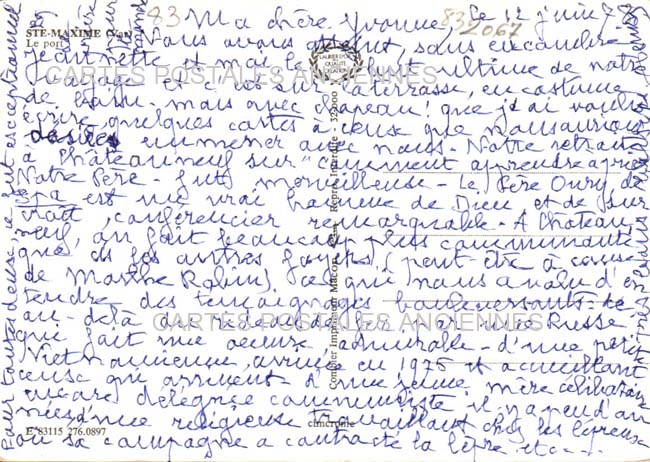 STE-MAXIME (Var)
Le port
83
83
2067
Ma chère Yvonne, le 12 juin 7
Nous avons atteint, sans encombre
Jeannette et moi le but ultime de notre
et c'est sur la terrasse, en costume
de bain - mais avec chapeau ! que j'ai voulu
écrire quelques cartes à ceux que nous aurions
désirés emmener avec nous - Notre retraite
à Châteauneuf sur "comment apprendre
Notre Père - fut merveilleuse - Le Père Onry, de
est un vrai homme de Dieu et de
conférencier remarquable - A Château
neuf, on fait beaucoup plus communauté
que ds les autres foyers (peut être à cause
de Marthe Robin) ce qui nous a valu d'en
tendre des témoignages bouleversants - de
au-delà du rideau de fer par une Russe
qui fait une oeuvre admirable - d'une petite
Vietnamienne, arrivée en 1975 et accueillant
ceux qui arrivent - d'une jeune mère célibataire
encore déléguée communiste il y a peu d'an
nées d'une religieuse travaillant chez les lépreux
où sa compagne a contracté la lèpre etc - - -
Pour toutes deux, ce fut exceptionnel
CARTES POSTALES ANCIENNES
CARTES POSTALES ANCIENNES
Combier Imprimeur Macon
E 83115 276.0897
cimcrome